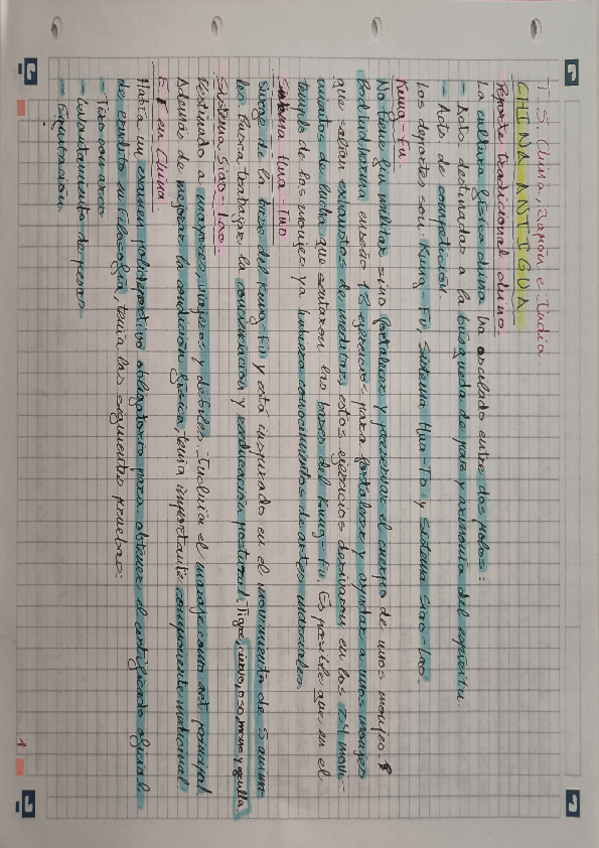 T. 5. China, Japón e India.
CHINA ANTIGUA
Deporte tradicional chino.
La cultura física china ha oscilado entre dos polos:
- Acto destinados a la búsqueda de paz y armonía del espíritu.
- Acto de competición.
Los deportes son: Kung-Fu, Sistema Hua-To y sistema Siao-Lao.
Kung-Fu
No tiene fin militar sino fortalecer y preservar el cuerpo de unos monjes.
Bodhidharma enseñó 18 ejercicios para fortalecer y ayudar a unos monjes
que salían exhaustos de meditar, estos ejercicios derivaron en los 24 movi-
mientos de lucha que sentaron las bases del Kung-Fu. Es posible que en el
templo de los monjes ya hubiera conocimientos de artes marciales.
Sistema Hua-Tuo
Surge de la base del Kung-Fu y está inspirado en el movimiento de 5 anima-
les. Busca trabajar la coordinación y reeducación postural. Tigre, ciervo, oso, mono y grulla
Sistema Siao-Lao.
Destinado a mayores, viajeros y débiles. Incluía el masaje como art. principal.
Además de mejorar la condición física, tenía importante componente medicinal.
E.F en China.
Había un examen polideportivo obligatorio para obtener el certificado oficial
de erudito en Filosofía, tenía las siguientes pruebas:
- Tiro con arco
- Levantamiento de pesas
- Equitación.
1